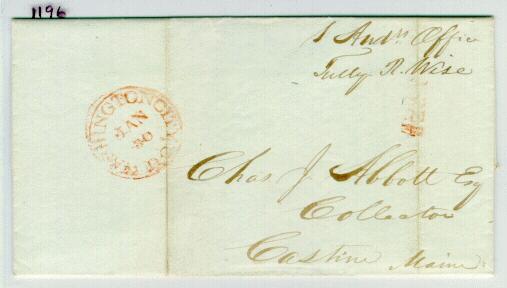 1196
1 Aud^rs Office
Tully R. Wise
WASHINGTON CITY
JAN
30
Chas J. Abbott Esq
Collector
Castine Maine